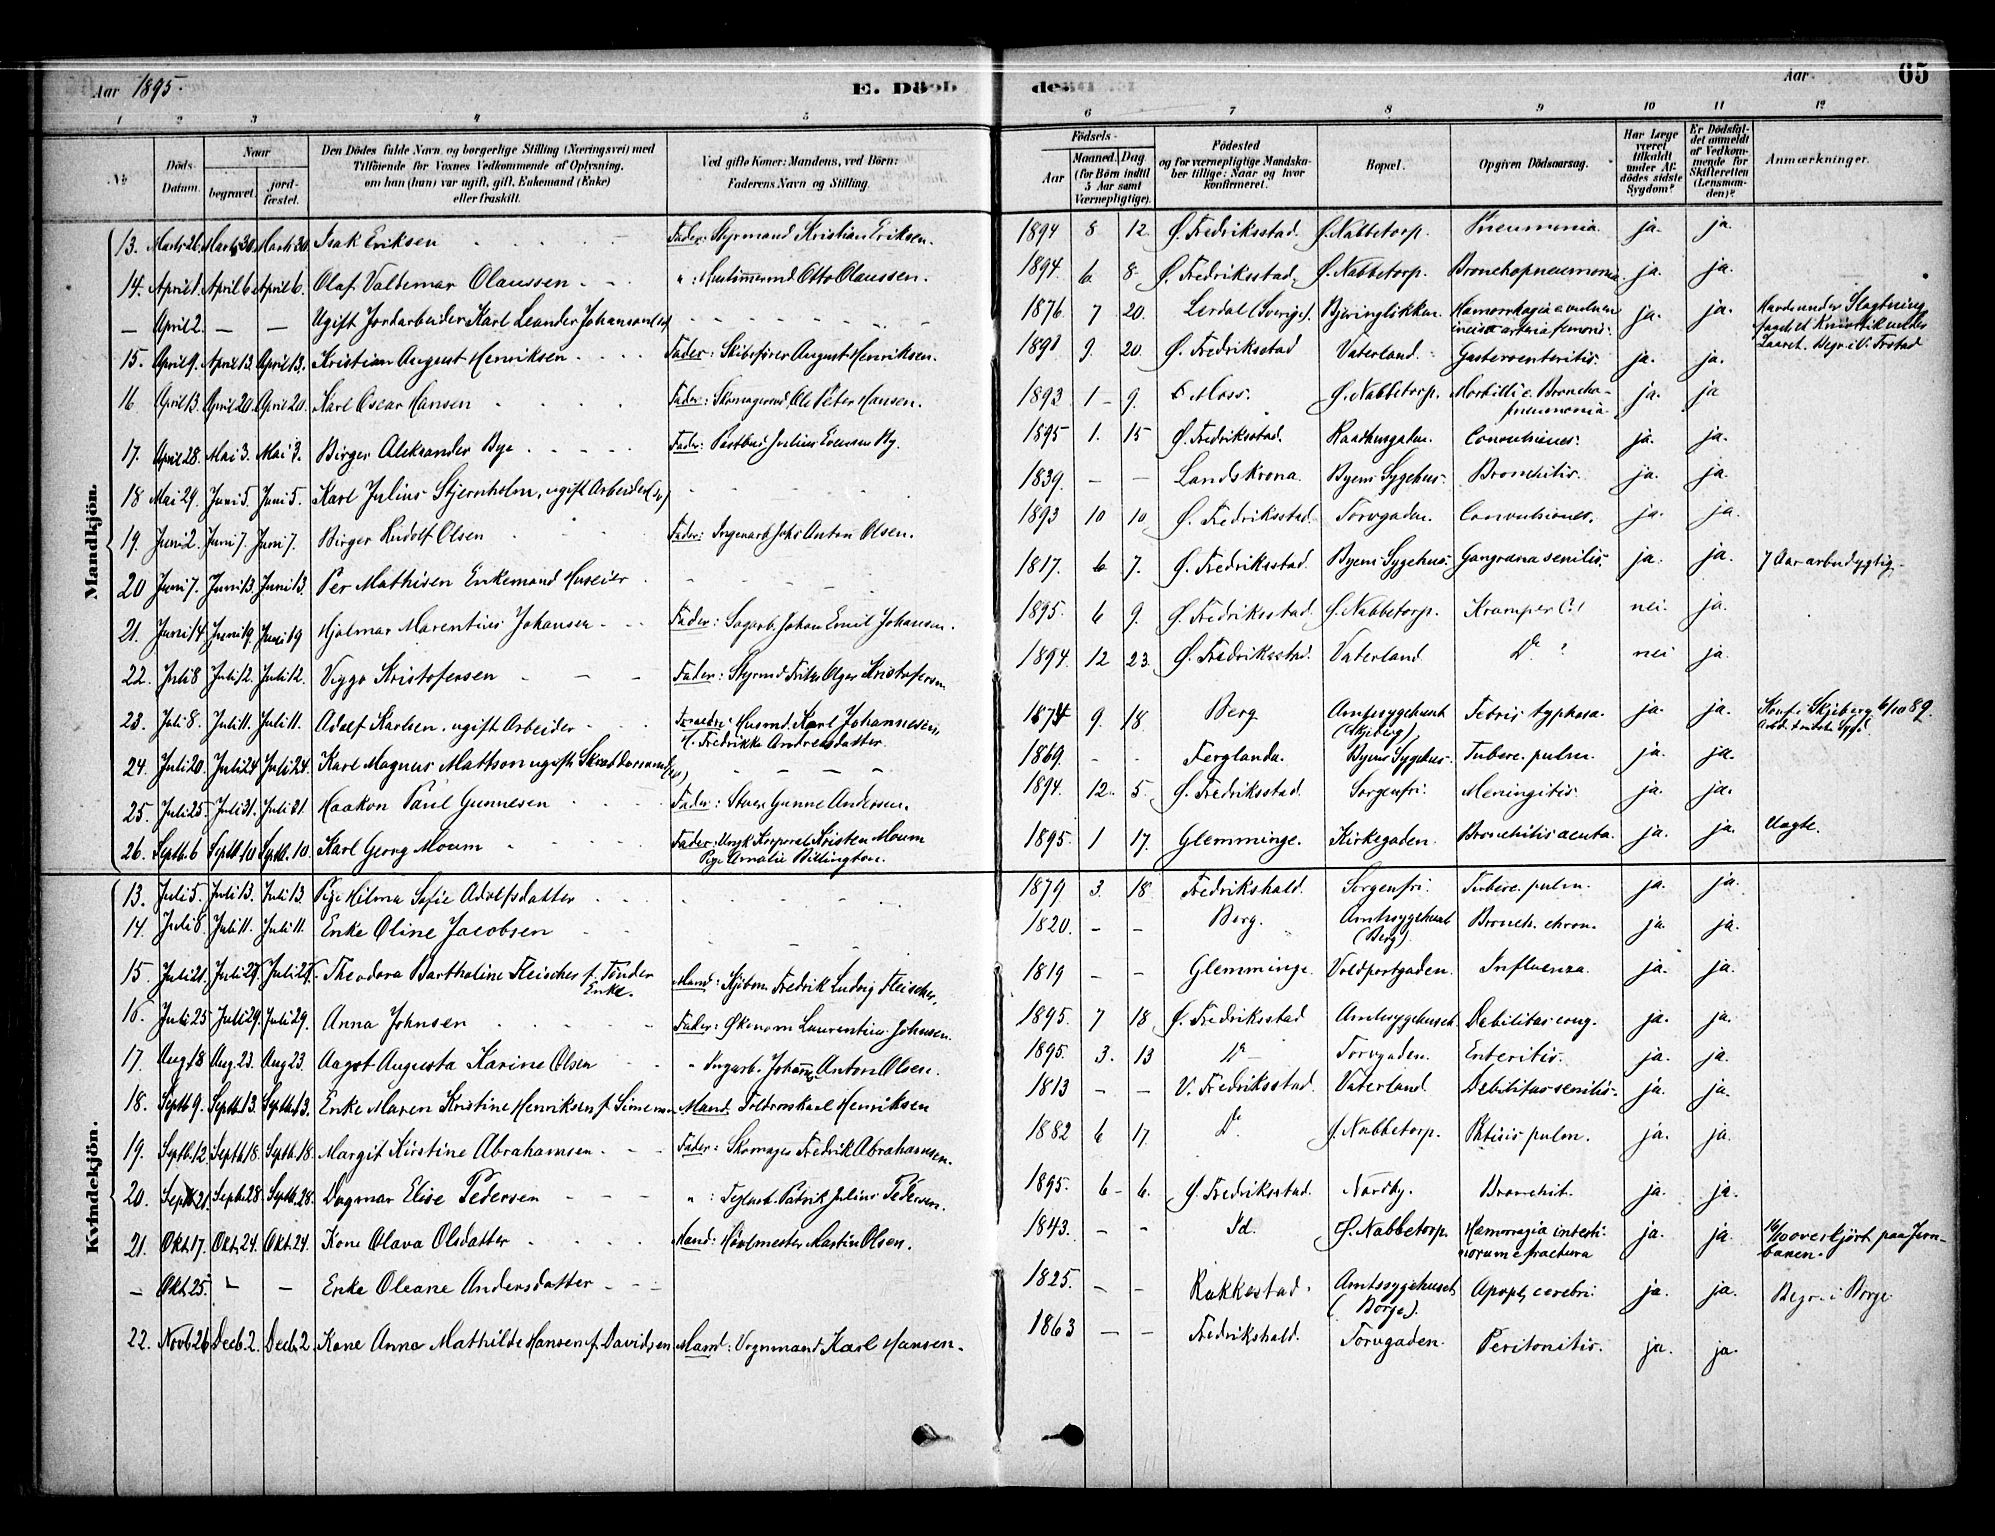 Aar 1895. E. Dö de. Aar 65
1 2 3 4 5 6 7 8 9 10 11 12
No
Döds-Datum.
Naar
begravet.
jord-fæstet.
Den Dödes fulde Navn og borgerlige Stilling (Næringsvei) med
Tilföiende for Voxnes Vedkommende af Oplysning,
om han (hun) var ugift, gift, Enkemand (Enke)
eller fraskilt.
Ved gifte Koner: Mandens, ved Börn:
Faderens Navn og Stilling.
Födsels-
Aar
Maaned. Dag.
(for Börn indtil
5 Aar samt
Værnepligtige).
Födested
og for værnepligtige Mandska-
ber tillige: Naar og hvor
konfirmeret.
Bopæl.
Opgiven Dödsaarsag.
Har Læge
været
tilkaldt
under Af-
dödes sidste
Sygdom?
Er Dödsfal-
det anmeldt
af Vedkom-
mende for
Skifteretten
(Lensman-
den)?
Anmærkninger.
Mandkjön.
13. Marts 26. Marts 30. Marts 30. Isak Eriksen Fader: Styrmand Kristian Eriksen. 1894 8 12. Ø. Fredriksstad. Ø. Nabbetorp. Pneumonia. ja. ja.
14. April 1. April 6. April 6. Olaf Valdemar Olaussen " : Otto Olaussen. 1894. 6. 8. Ø. Fredriksstad. Ø. Nabbetorp. Bronchopneumonia. ja. ja.
— April 2. — — Ugift Jordarbeider Karl Leander Johanson 1876 7 20. Lerdal (Sverige). Bjeringløkken. Hæmorrhagia e vulnere ja. ja. Havde under Slagtning
15. April 9. April 13. April 13. Kristian August Henriksen Fader: Skibsfører August Henriksen. 1891 9. 20. Ø. Fredriksstad Vaterland. Gasteroenteritis. ja. ja. Laaret. Begr. i V. Frstad
16 April 13. April 20. April 20. Karl Oscar Hansen Fader: Skomagersvd Ole Peter Hansen. 1893 1 9. Moss. Ø. Nabbetorp. Morbilli c. Broncho-
pneumonia. ja. ja
17. April 28. Mai 3. Mai 3. Birger Aleksander Bye Fader: Postbud Julius Evensen By. 1895 1. 15 Ø. Fredriksstad. Raadhusgaden. Convulsiones. ja. ja.
18 Mai 29. Juni 5. Juni 5. Karl Julius Stjernholm, ugift Arbeider 1839. — — Landskrona. Byens Sygehus. Bronchitis. ja. ja.
19. Juni 2. Juni 7. Juni 7. Birger Rudolf Olsen Fader: Anton Olsen. 1893 10 10, Ø. Fredriksstad. Torvgaden. Convulsiones. ja. ja.
20 Juni 7. Juni 13. Juni 13. Per Mathisen Enkemand Huseier 1817. 6 7. Ø. Fredriksstad. Byens Sygehus. Gangræna senilis. ja. ja. 7 Aar arbudygtig
21. Juni 14 Juni 19 Juni 19 Hjalmar Marentius Johansen Fader: Sagarb. Johan Emil Johansen. 1895. 6 9. Ø. Fredriksstad. Ø. Nabbetorp. Kramper nei. ja.
22. Juli 8 Juli 12. Juli 12. Viggo Kristofersen Fader: Styrmd Kristofersen 1894. 12 23. Ø. Fredriksstad. Vaterland Do ? nei ja.
23. Juli 8. Juli 11. Juli 11. Adolf Karlsen, ugift Arbeider Forældre: Husmd. Karl Johannesen,
H. Fredrikke Andreasdatter. 1874 9. 18 Berg Amtssygehuset
(Skjeberg) Febris typhosa. ja. ja. Konf. i Skjeberg 6/10 89.
24. Juli 20. Juli 24 Juli 24. Karl Magnus Mattson ugift 1869. — — Ferglanda. Byens Sygehus. Tuberc. pulm. ja. ja.
25. Juli 25 Juli 31. Juli 31. Haakon Paul Gunnesen Fader: Gunne Andersen. 1894. 12. 5. Ø. Fredriksstad. Sorgenfri. Meningitis. ja. ja.
26. Septb. 6 Septb. 10 Septb. 10. Karl Georg Moum Fader: Korporal Kristen Moum
Pige Amalie Billington. 1895. 1 17. Glemminge. Kirkegaden. Bronchitis acuta. ja. ja. Uægte.
Kvindekjön.
13. Juli 5. Juli 13. Juli 13. Pige Hilma Sofie Adolfsdatter 1879 3. 18 Fredrikshald. Sorgenfri. Tuberc. pulm. ja. ja.
14. Juli 8. Juli 11. Juli 11. Enke Oline Jacobsen 1820. — — Berg. Amtssygehuset
(Berg) Bronch. chron. ja. ja.
15. Juli 21. Juli 27. Juli 27. Theodora Bartholine Fleischer f. Tönder
Enke. Mand: Kjöbm. Fredrik Ludvig Fleischer. 1819 — — Glemminge. Voldportgaden. Influenza. ja. ja.
16. Juli 25 Juli 29. Juli 29. Anna Johnsen Fader: Økonom Laurentius Johnsen. 1895. 7 18 Ø. Fredriksstad Amtssygehuset. Debilitas cong. ja. ja.
17. Aug. 18 Aug. 23. Aug. 23. Aagot Augusta Karine Olsen " Johan Anton Olsen. 1895. 3. 13 Do Torvgaden. Enteritis. ja. ja.
18. Septb 9. Septb. 13. Septb. 13. Enke Maren Kristine Henriksen f. Simensen Mand Karl Henriksen 1813 — — V. Fredriksstad. Vaterland. Debilitas senilis. ja. ja.
19. Septb. 12. Septb. 18. Septb. 18. Margit Kirstine Abrahamsen Fader: Skomager Fredrik Abrahamsen. 1882 6 17. Do. Ø. Nabbetorp. Phtisis pulm. ja. ja.
20. Septb 21. Septb. 28. Septb. 28. Dagmar Elise Pedersen " : Teglarb. Patrik Julius Pedersen. 1895. 6 6. Ø. Fredriksstad. Nordby. Bronchit. ja. ja.
21. Okt. 17. Okt. 24. Okt. 24. Kone Olava Olsdatter Mand: Høvlmester Martin Olsen. 1843. — — Id. Ø. Nabbetorp. Hæmoragia intesti-
norum e fractura ja. ja. 16/10 overkjørt paa Jern-
banen.
— Okt. 25. — — Enke Oleane Andersdatter 1825. — — Rakkestad. Amtssygehuset
(Borge). Apopl. cerebri. ja. ja. Begr. i Borge
22. Novb. 26 Decb. 2. Decb. 2. Kone Anna Mathilde Hansen f. Davidsen Mand: Vognmand Karl Hansen. 1863 — — Fredrikshald. Torvgaden. Peritonitis. ja. ja.